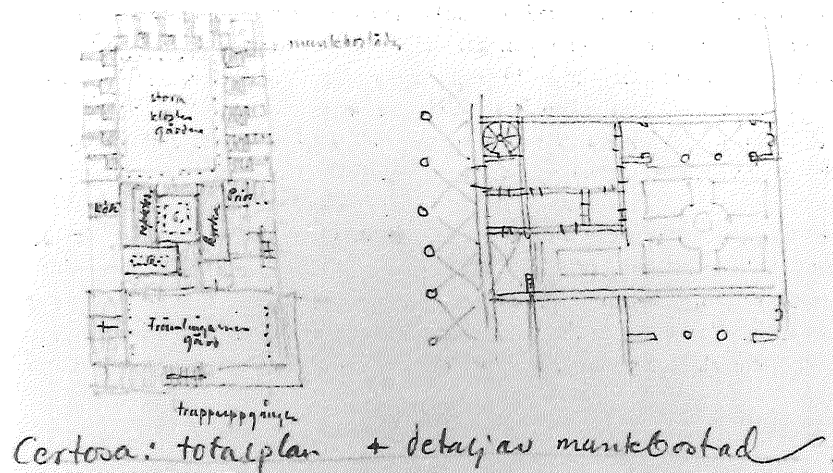 munkbostäder
stora
kloster
gården
kök
refektor.
kyrka
Prior
Främlingarnas
gård
trappuppgången
Certosa: totalplan + detalj av munkbostad